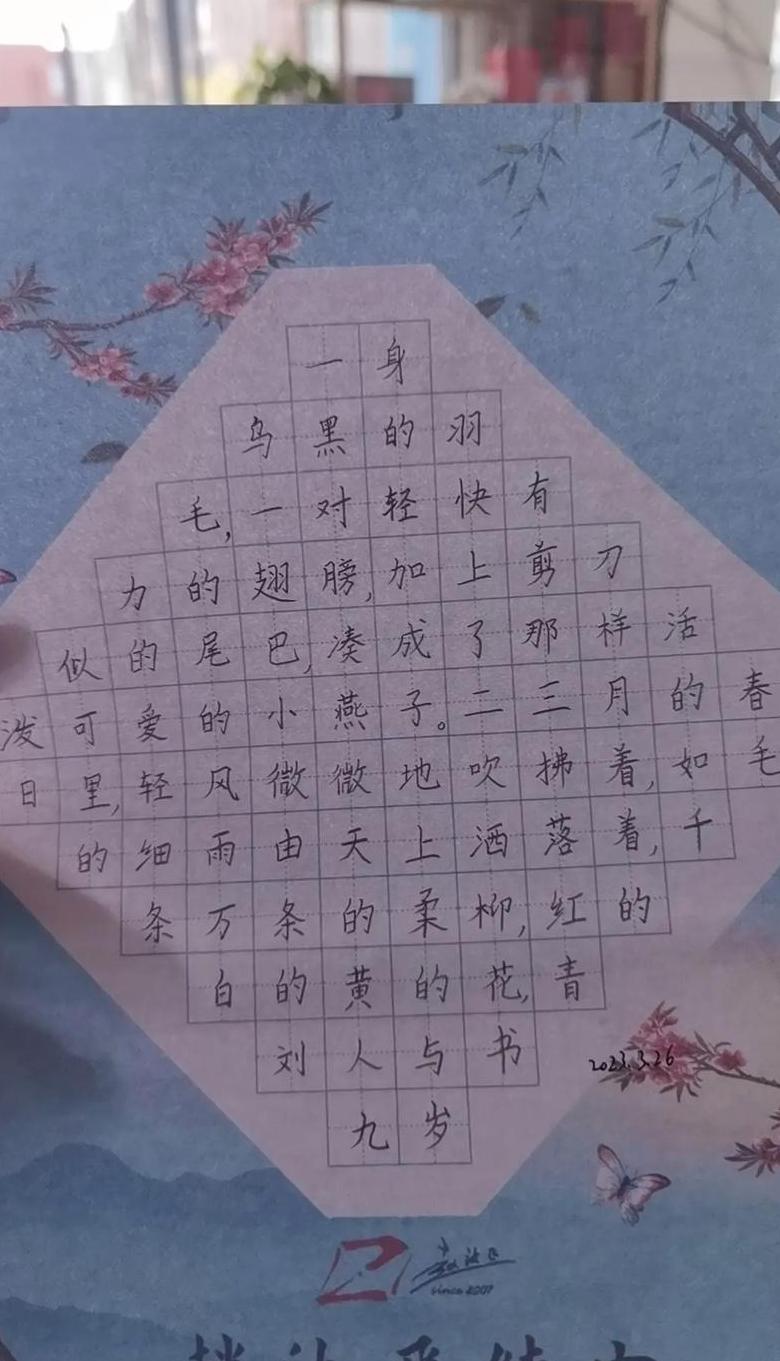 一身
乌黑的羽
毛,一对轻快有
力的翅膀,加上剪刀
似的尾巴,凑成了那样活
泼可爱的小燕子。二三月的春
日里,轻风微微地吹拂着,如毛
的细雨由天上洒落着,千
条万条的柔柳,红的
白的黄的花,青
刘人与书
2023.3.26
九岁
since 2007